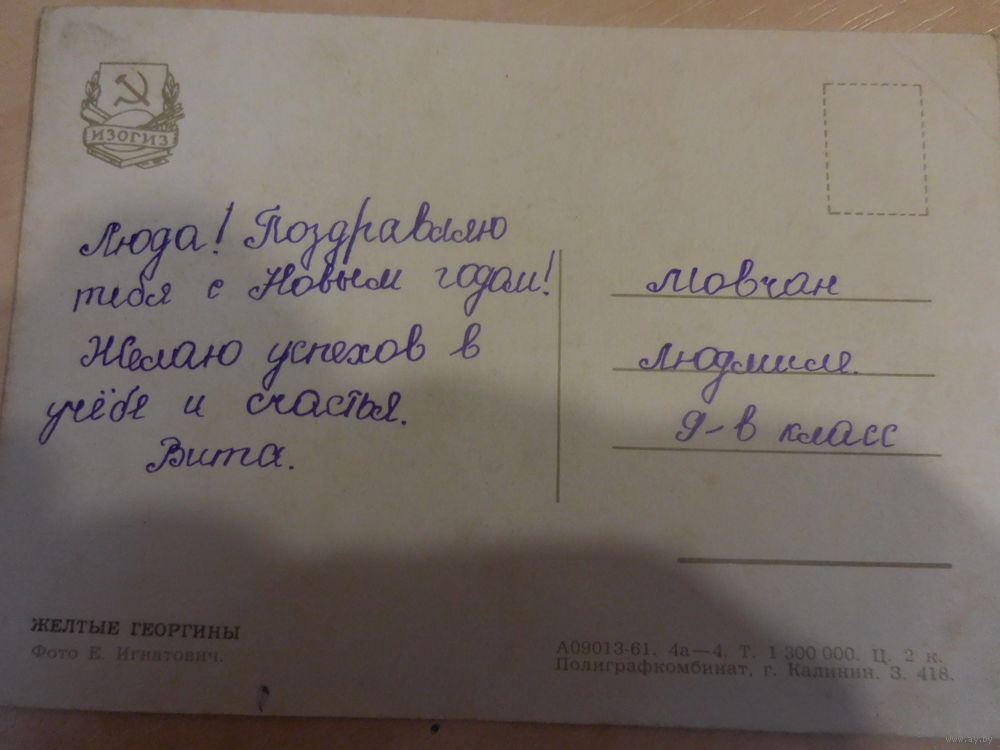 ИЗОГИЗ
Люда! Поздравляю
тебя с Новым годом!
Желаю успехов в
учёбе и счастья.
Вита.
Мовчан
Людмиле.
9-в класс
ЖЕЛТЫЕ ГЕОРГИНЫ
Фото Е. Игнатович.
А09013-61. 4а—4. Т. 1 300 000. Ц. 2 к.
Полиграфкомбинат, г. Калинин. З. 418.
www.ay.by